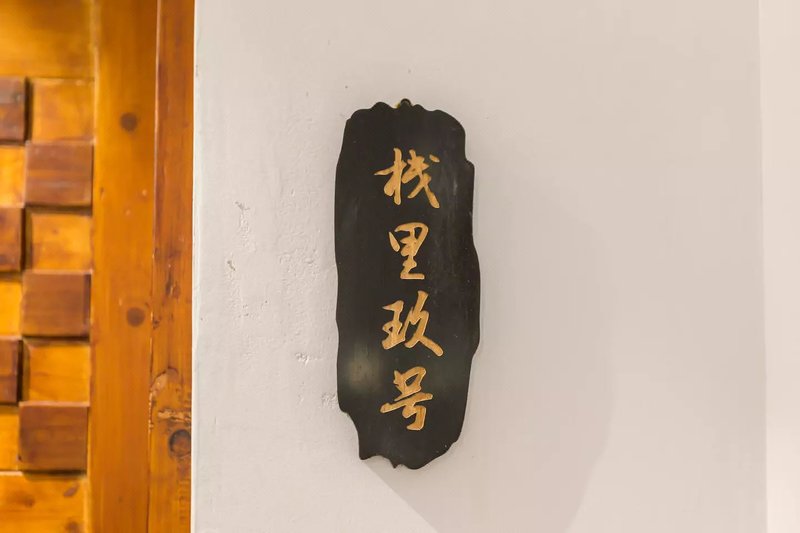 栈里玖号